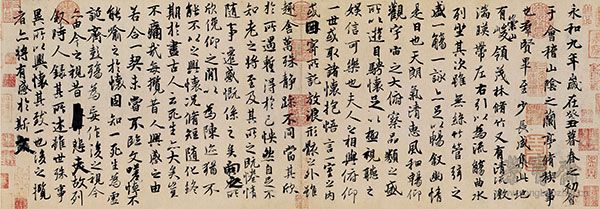 永和九年歲在癸丑暮春之初會
于會稽山陰之蘭亭脩禊事
也群賢畢至少長咸集此地
有崇山峻領茂林脩竹又有清流激
湍暎帶左右引以為流觴曲水
列坐其次雖無絲竹管弦之
盛一觴一詠亦足以暢敘幽情
是日也天朗氣清惠風和暢仰
觀宇宙之大俯察品類之盛
所以遊目騁懷足以極視聽之
娛信可樂也夫人之相與俯仰
一世或取諸懷抱悟言一室之內
或因寄所託放浪形骸之外雖
趣舍萬殊靜躁不同當其欣
於所遇暫得於己怏然自足不
知老之將至及其所之既惓情
隨事遷感慨係之矣向之所
欣俛仰之間以為陳迹猶不
能不以之興懷況脩短隨化終
期於盡古人云死生亦大矣豈
不痛哉每攬昔人興感之由
若合一契未嘗不臨文嗟悼不
能喻之於懷固知一死生為虛
誕齊彭殤為妄作後之視今
亦由今之視昔悲夫故列
敘時人錄其所述雖世殊事
異所以興懷其致一也後之攬
者亦將有感於斯文